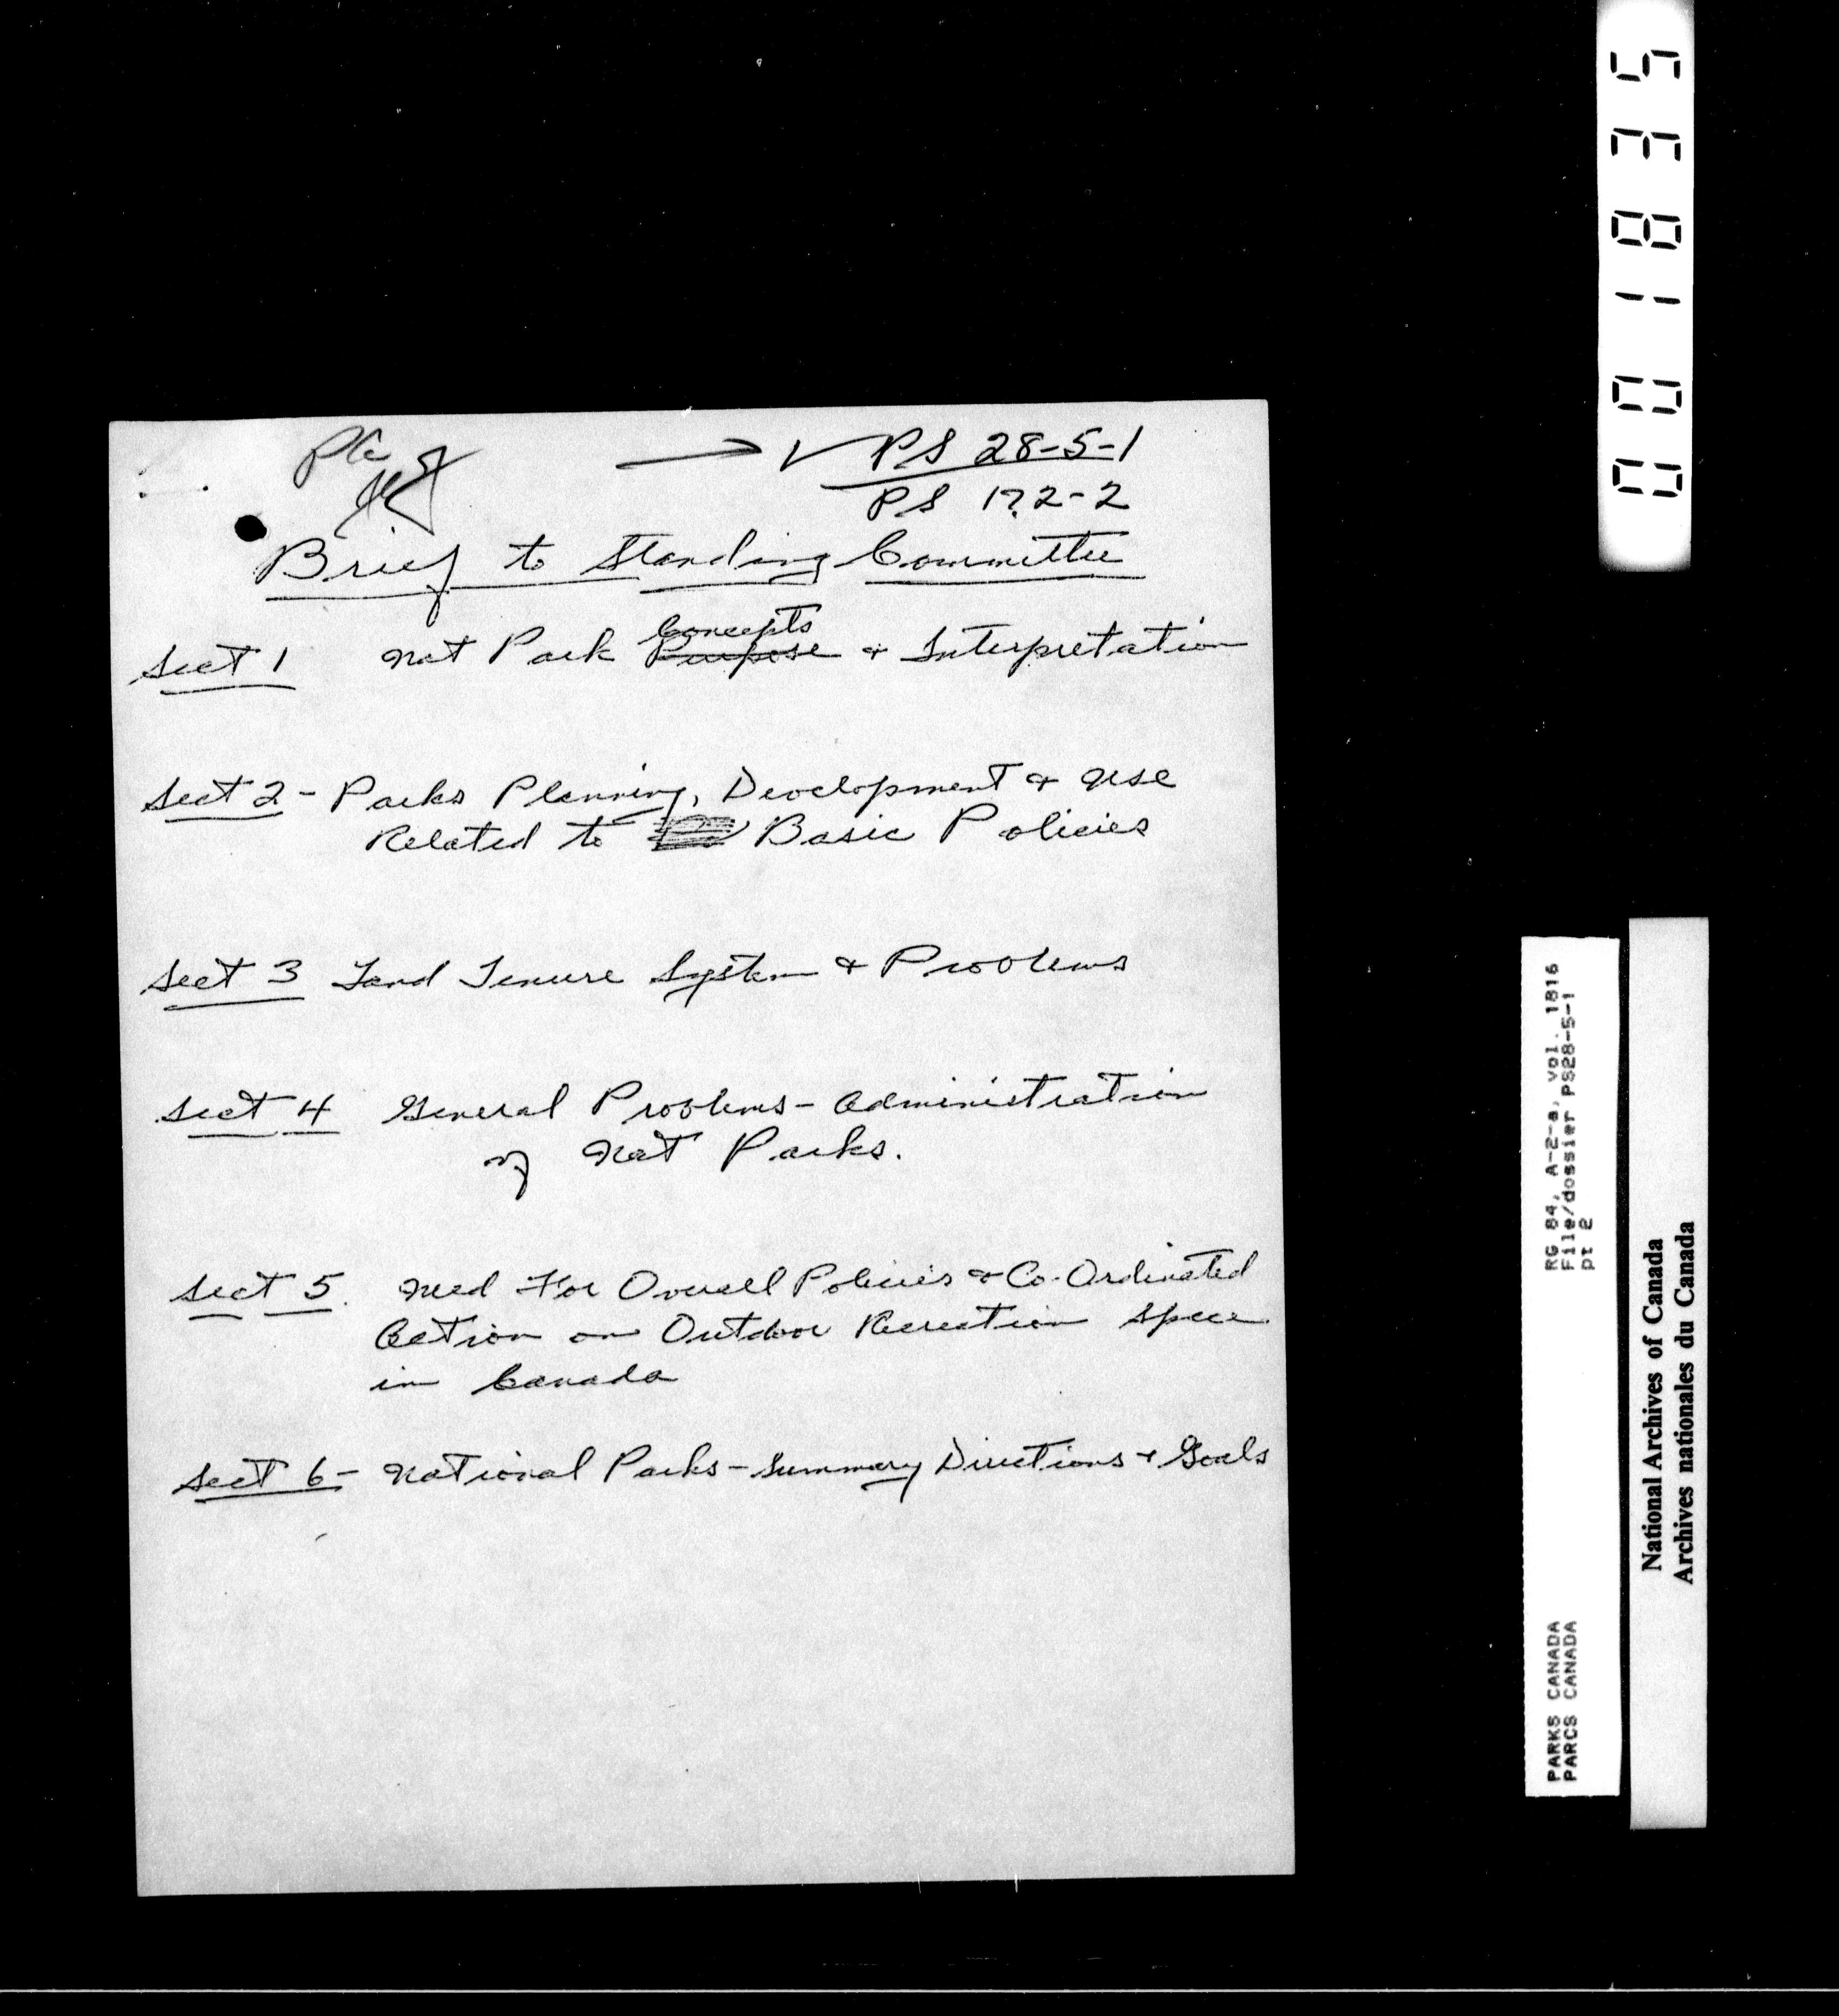 → ✓ PS 28-5-1
PS 172-2
Brief to Standing Committee
Concepts
Sect 1 Nat Park Purpose & Interpretation
Sect 2 - Parks Planning, Development & Use
Related to Basic Policies
Sect 3 Land Tenure System & Problems
Sect 4 General Problems - Administration
of Nat Parks.
Sect 5. Need For Overall Policies & Co-Ordinated
Action on Outdoor Recreation Space
in Canada
Sect 6 - National Parks - Summary Directions & Goals
001835
RG 84, A-2-a, vol. 1816
File/dossier PS28-5-1
pt 2
PARKS CANADA
PARCS CANADA
National Archives of Canada
Archives nationales du Canada